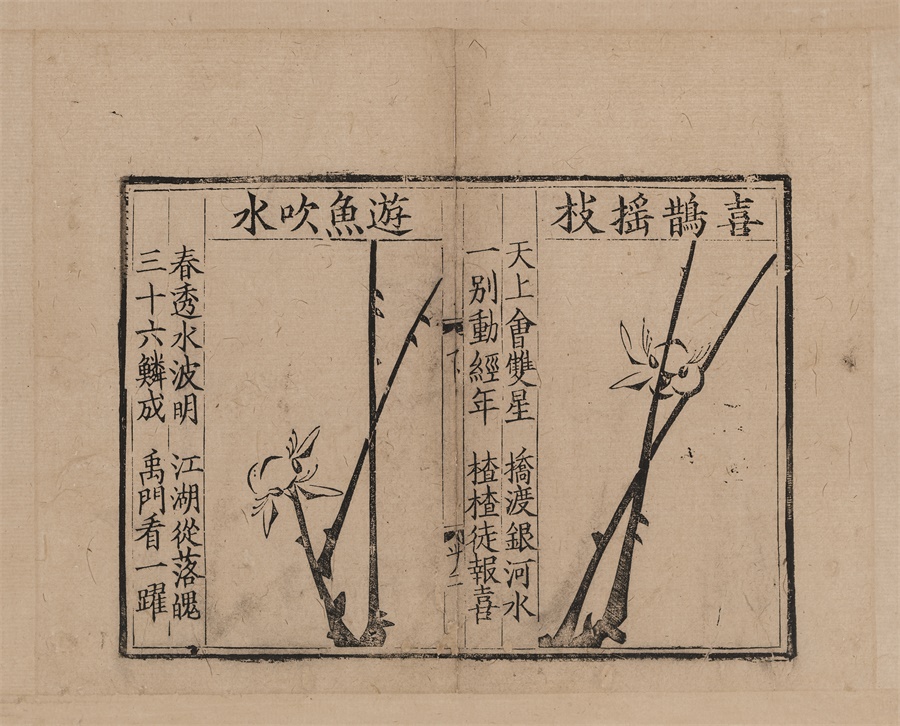 喜鵲搖枝
天上會雙星　橋渡銀河水
一别動經年　楂楂徒報喜
下
廿二
遊魚吹水
春透水波明　江湖從落魄
三十六鱗成　禹門看一躍